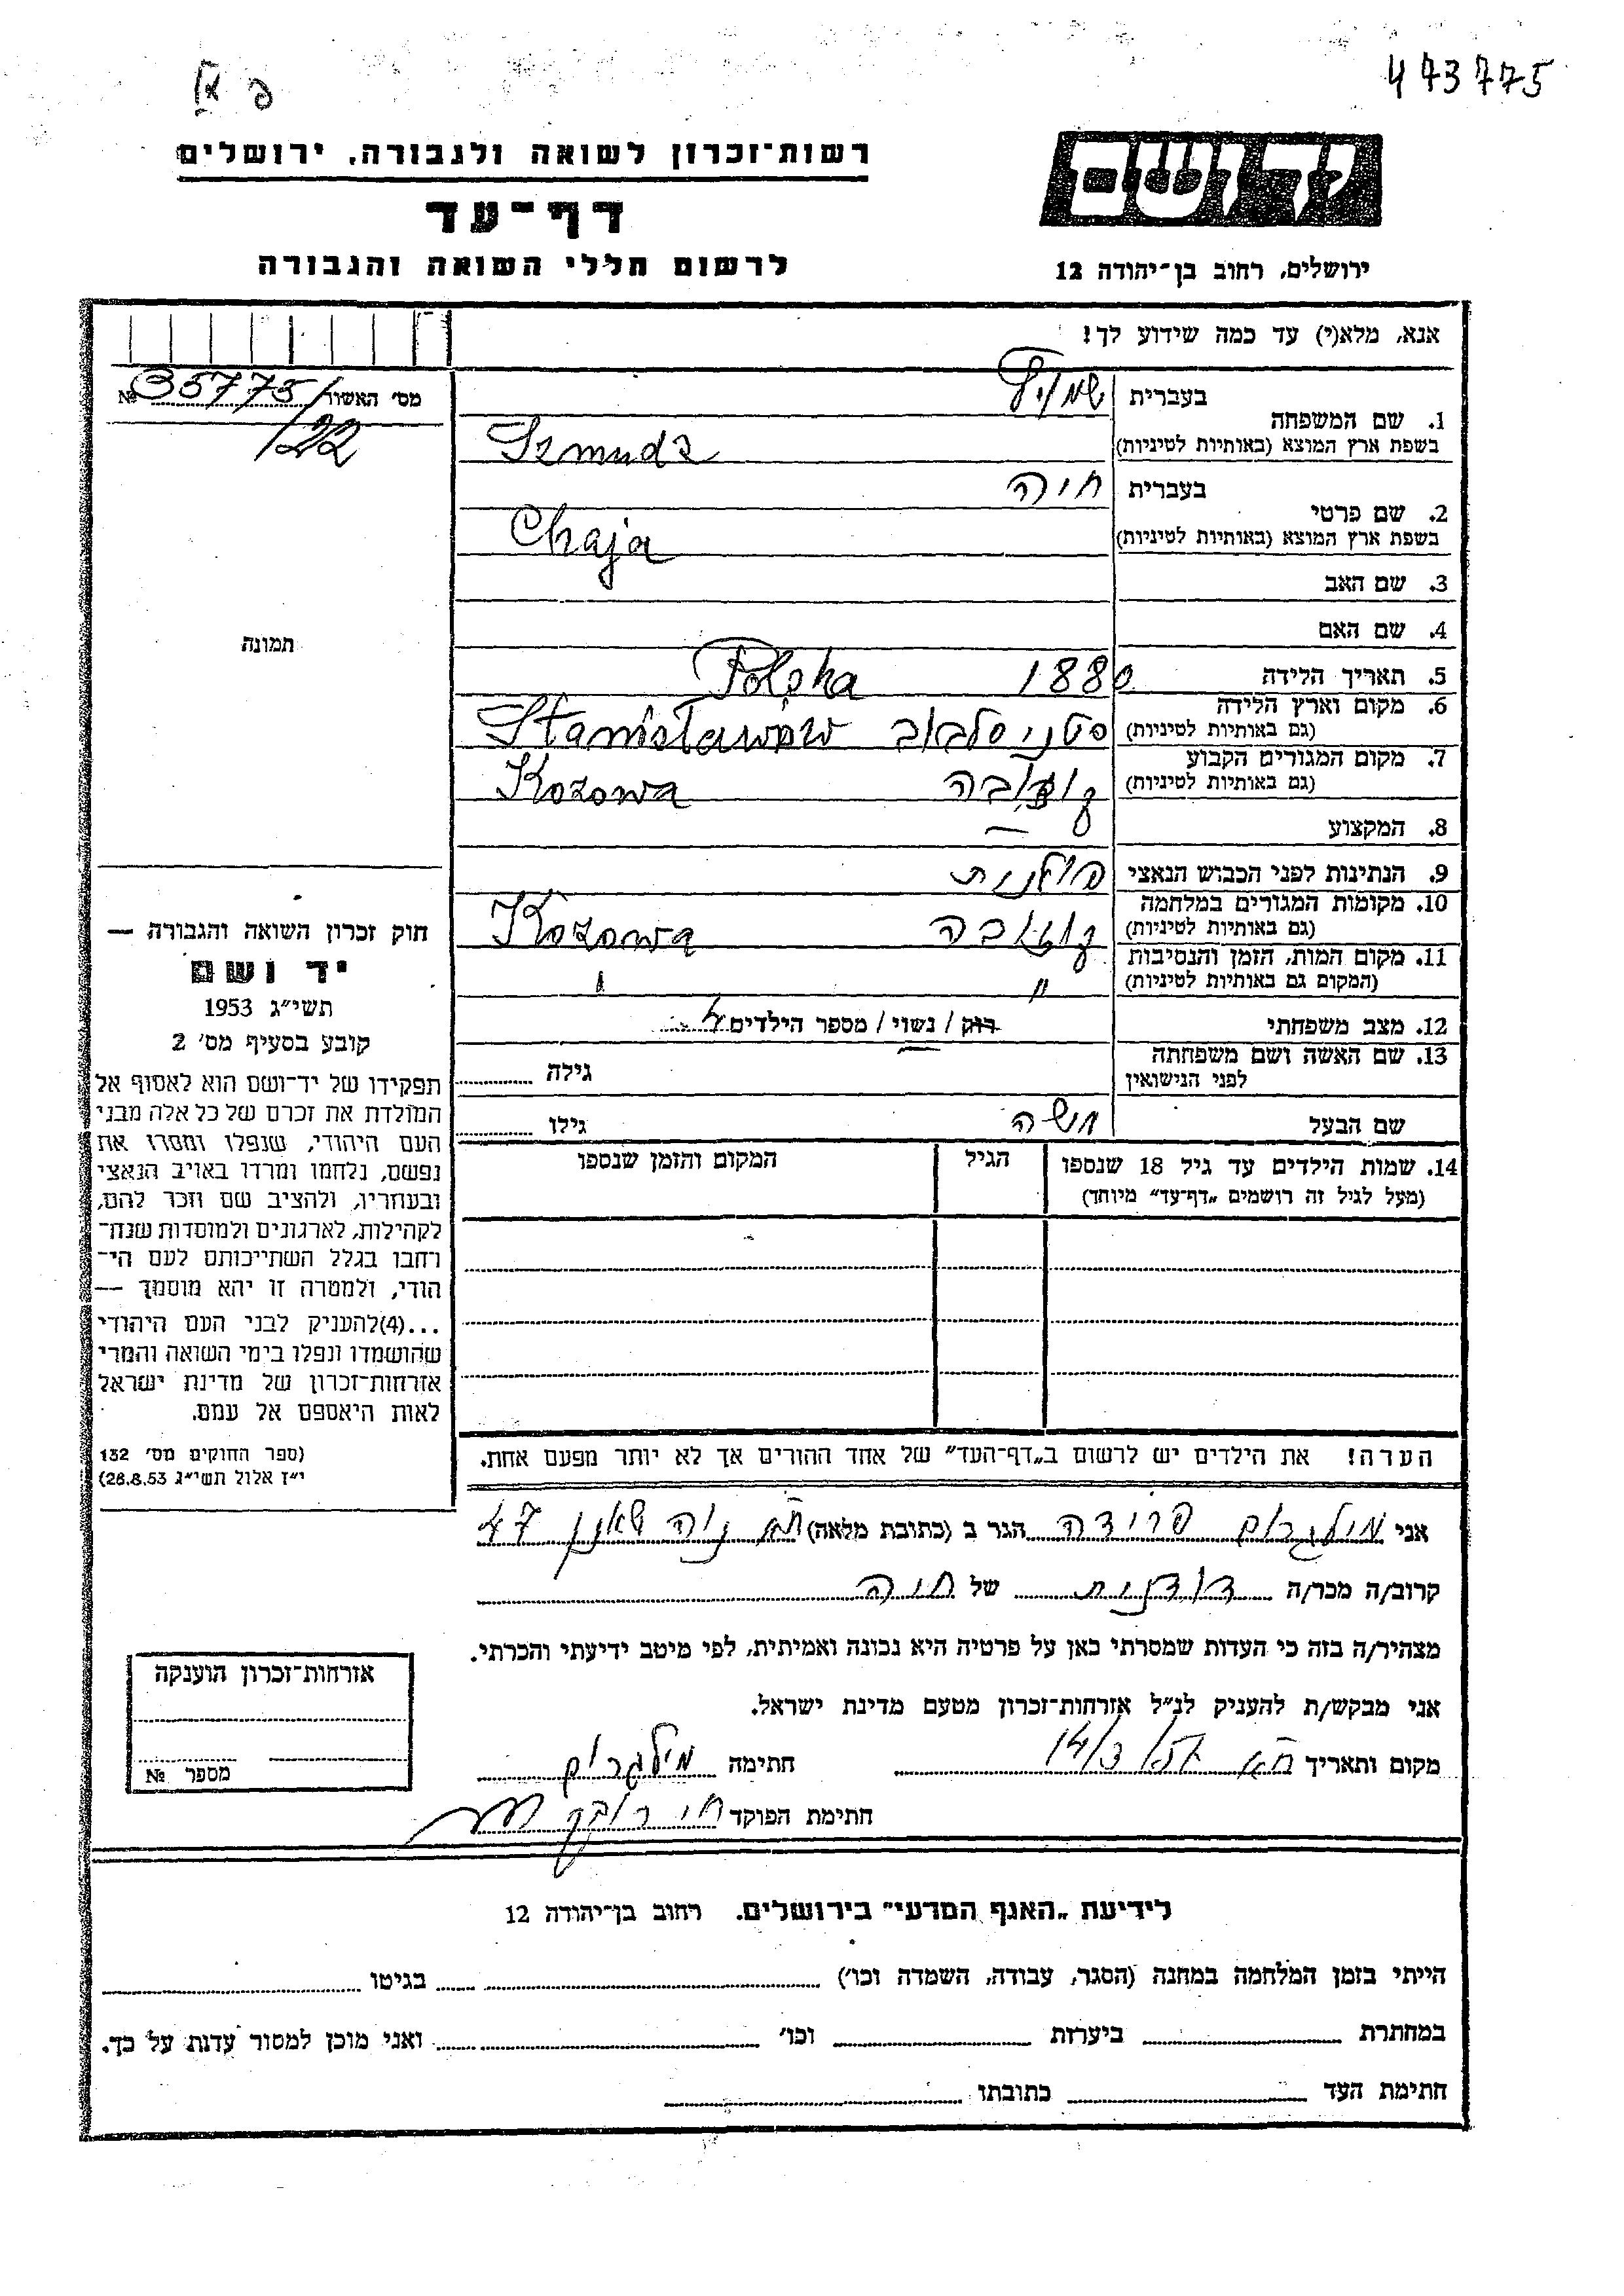 473775
פ אן
רשות־זכרון לשואה ולגבורה, ירושלים
ידושם
דף־עד
לרשום חללי השואה והגבורה
ירושלים, רחוב בן־יהודה 12
אנא, מלא(י) עד כמה שידוע לך!
מס׳ האשור 35775/ №
/22
בעברית
1. שם המשפחה
בשפת ארץ המוצא (באותיות לטיניות) Szmudz
בעברית חיה
2. שם פרטי
בשפת ארץ המוצא (באותיות לטיניות) Chaja
3. שם האב
4. שם האם
תמונה
5. תאריך הלידה 1880 Polska
6. מקום וארץ הלידה
(גם באותיות לטיניות) סטניסלבוב Stanisławów
7. מקום המגורים הקבוע
(גם באותיות לטיניות) קוזובה Kozowa
8. המקצוע —
9. הנתינות לפני הכבוש הנאצי פולנית
10. מקומות המגורים במלחמה
(גם באותיות לטיניות) קוזובה Kozowa
11. מקום המות, הזמן והנסיבות
(המקום גם באותיות לטיניות) " "
12. מצב משפחתי רווק / נשוי / מספר הילדים 4
13. שם האשה ושם משפחתה
לפני הנישואין גילה
שם הבעל משה גילו
14. שמות הילדים עד גיל 18 שנספו הגיל המקום והזמן שנספו
(מעל לגיל זה רושמים „דף־עד” מיוחד)
חוק זכרון השואה והגבורה —
יד ושם
תשי״ג 1953
קובע בסעיף מס׳ 2
תפקידו של יד־ושם הוא לאסוף אל
המולדת את זכרם של כל אלה מבני
העם היהודי, שנפלו ומסרו את
נפשם, נלחמו ומרדו באויב הנאצי
ובעוזריו, ולהציב שם וזכר להם,
לקהילות, לארגונים ולמוסדות שנח־
רחבו בגלל השתייכותם לעם הי־
הודי, ולמטרה זו יהא מוסמך —
...(4)להעניק לבני העם היהודי
שהושמדו ונפלו בימי השואה והמרי
אזרחות־זכרון של מדינת ישראל
לאות היאספם אל עמם.
(ספר החוקים מס׳ 132
י״ז אלול תשי״ג 28.8.53)
הערה! את הילדים יש לרשום ב„דף־העד” של אחד ההורים אך לא יותר מפעם אחת.
אני מילגרום פרידה הגר ב (כתובת מלאה) ת״א נוה שאנן 47
קרוב/ה מכר/ה דודנית של חיה
מצהיר/ה בזה כי העדות שמסרתי כאן על פרטיה היא נכונה ואמיתית, לפי מיטב ידיעתי והכרתי.
אני מבקש/ת להעניק לנ״ל אזרחות־זכרון מטעם מדינת ישראל.
מקום ותאריך ת״א 14/3 חתימה מילגרום
חתימת הפוקד
אזרחות־זכרון הוענקה
מספר №
לידיעת „האגף המדעי” בירושלים. רחוב בן־יהודה 12
הייתי בזמן המלחמה במחנה (הסגר, עבודה, השמדה וכו׳) בגיטו
במחתרת ביערות וכו׳ ואני מוכן למסור עדות על כך.
חתימת העד כתובתו